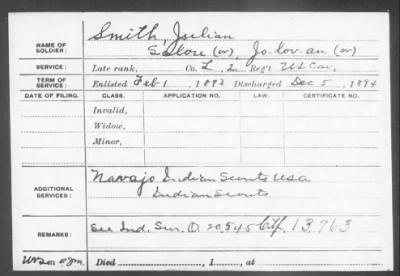 NAME OF SOLDIER: Smith, Julian
(or), Jo-lov-an (or)
SERVICE: Late rank, Co. L, 2 Reg't US Cav.
TERM OF SERVICE: Enlisted Feb 1, 1893 Discharged Dec 5, 1894
DATE OF FILING. CLASS. APPLICATION NO. LAW. CERTIFICATE NO.
Invalid,
Widow,
Minor,
ADDITIONAL SERVICES: Navajo Indian Scouts USA
Indian Scouts
REMARKS: See Ind. Sur. O. 20,545 Ctf. 13,763
Died , 1 , at